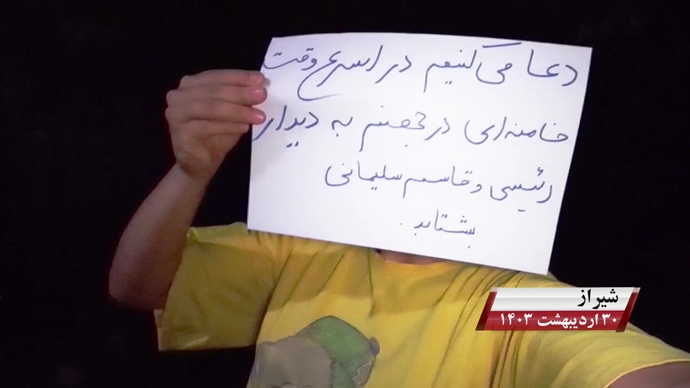 دعا می کنیم در اسرع وقت
خامنه‌ای در جهنم به دیدار
رئیسی و قاسم سلیمانی
بشتابد.
شیراز
۳۰ اردیبهشت ۱۴۰۳